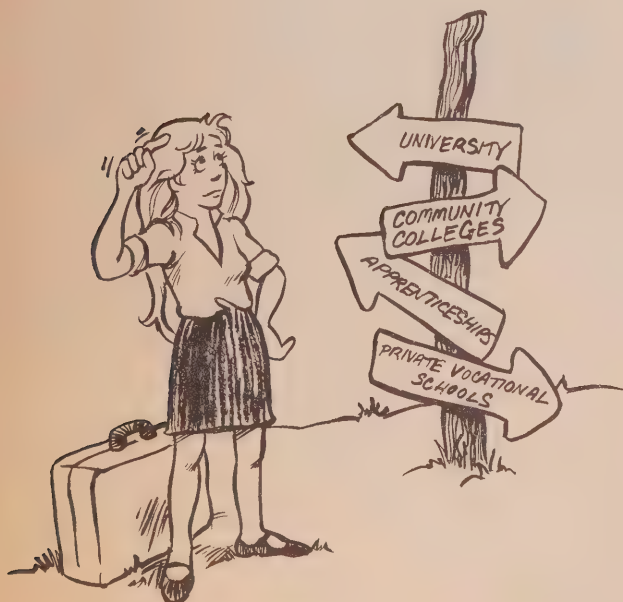 UNIVERSITY
COMMUNITY
COLLEGES
APPRENTICESHIPS
PRIVATE VOCATIONAL
SCHOOLS